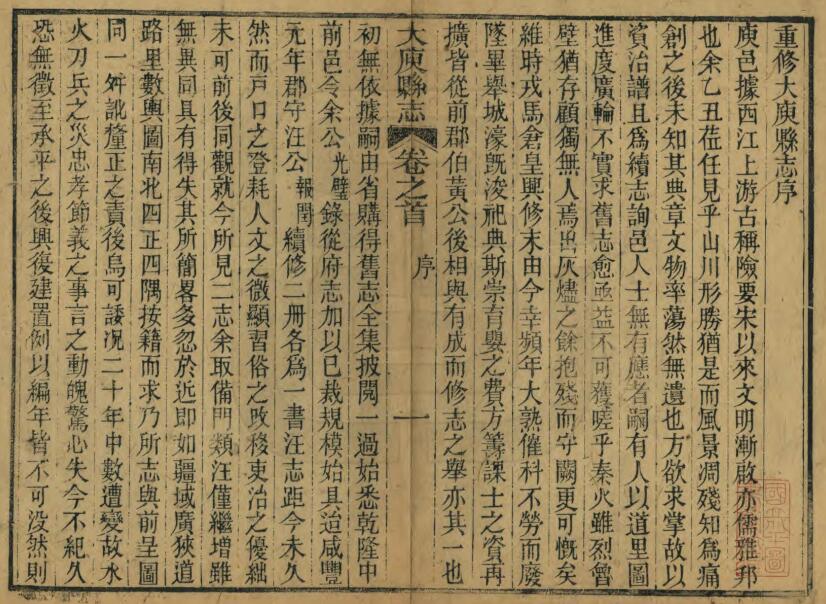 重修大庾縣志序
庾邑據西江上游古稱險要宋以來文明漸啟亦儒雅邦
也余乙丑莅任見乎山川形勝猶是而風景凋殘知為痛
創之後未知其典章文物率蕩然無遺也方欲求掌故以
資治譜且為續志詢邑人士無有應者嗣有人以道里圖
進度廣輪不實求舊志愈亟益不可獲嗟乎秦火雖烈魯
壁猶存顧獨無人焉出灰燼之餘抱殘而守闕更可慨矣
維時戎馬倉皇興修末由今幸頻年大熟催科不勞而廢
墜畢舉城濠既浚祀典斯崇育嬰之費方籌課士之資再
擴皆從前郡伯黃公後相與有成而修志之舉亦其一也
大庾縣志
卷之首
序
一
初無依據嗣由省購得舊志全集披閱一過始悉乾隆中
前邑令余公光璧錄從府志加以已裁規模始具迨咸豐
元年郡守汪公報閏續修二冊各為一書汪志距今未久
然而戶口之登耗人文之微顯習俗之改移吏治之優絀
未可前後同觀就今所見二志余取備門類汪僅繼增雖
無異同具有得失其所簡畧多忽於近即如疆域廣狹道
路里數輿圖南北四正四隅按籍而求乃所志與前呈圖
同一舛訛釐正之責後烏可諉況二十年中數遭變故水
火刀兵之災忠孝節義之事言之動魄驚心失今不紀久
恐無徵至承平之後興復建置例以編年皆不可没然則